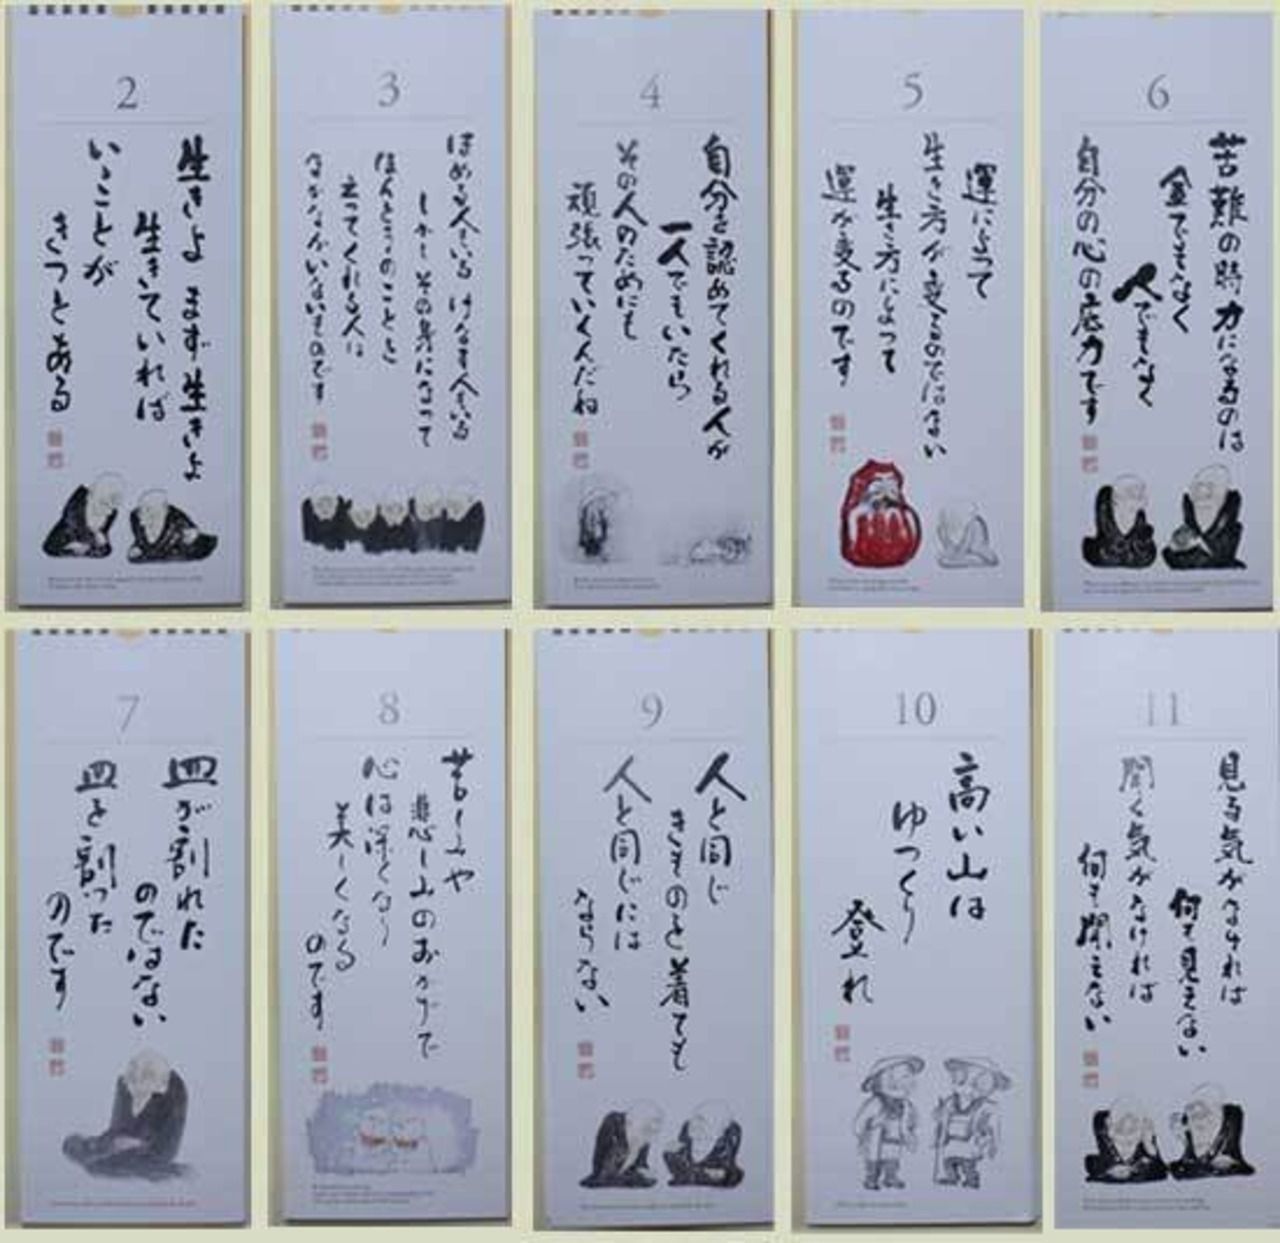 2
生きよ まず生きよ
生きていれば
いゝことが
きっとある
3
ほめる人もいる けなす人もいる
しかしその身になって
ほんとうのことを
言ってくれる人は
なかなかいないものです
4
自分を認めてくれる人が
一人でもいたら
その人のためにも
頑張っていくんだね
5
運によって
生き方が変るのではない
生き方によって
運が変るのです
6
苦難の時力になるのは
金でもなく
人でもなく
自分の心の底力です
7
皿が割れた
のではない
皿を割った
のです
8
苦しみや
悲しみのおかげで
心は深くなり
美しくなる
のです
9
人と同じ
きものを着ても
人と同じには
ならない
10
高い山は
ゆっくり
登れ
11
見る気がなければ
何も見えない
聞く気がなければ
何も聞えない